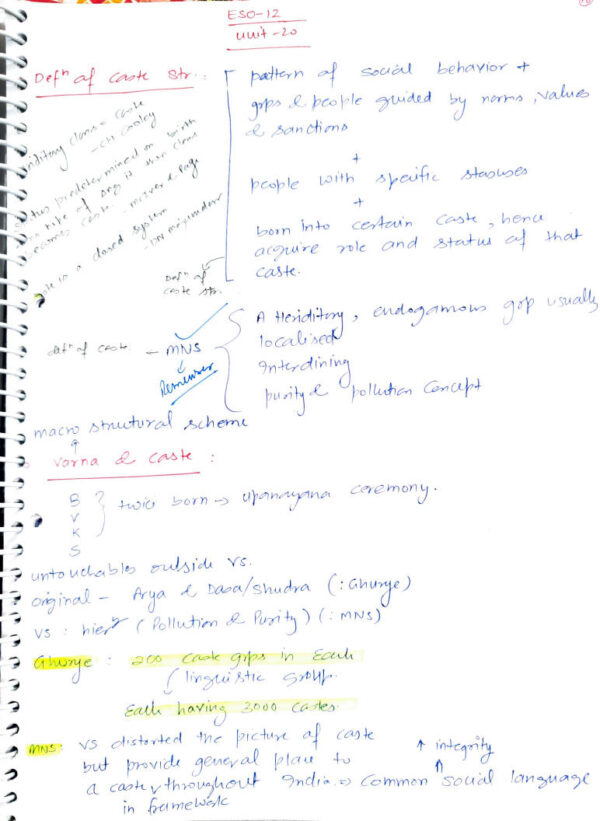 ESO-12
Unit-20
Defn of caste str. :
pattern of social behavior +
grps & people guided by norms, values
& sanctions
+
people with specific statuses
+
born into certain caste, hence
acquire role and status of that
caste.
Defn of
caste str.
class = caste
- CH Cooley
status predetermined on birth
- McIver & Page
in a closed system
- DN Majumdar
defn of caste - MNS
Remember
A Heriditory, endogamous grp usually
localised
Interdining
purity & pollution concept
macro structural scheme
Varna & Caste :
B
V
K
S
twice born → upanayana ceremony.
untouchables outside VS.
original - Arya & Dasa/Shudra (: Ghurye)
VS : hier (Pollution & Purity) (: MNS)
Ghurye : 200 caste grps in Each
linguistic group.
Each having 3000 castes.
MNS: VS distorted the picture of caste
but provide general place to
a caste throughout India → Common social language
in framework
↑ integrity